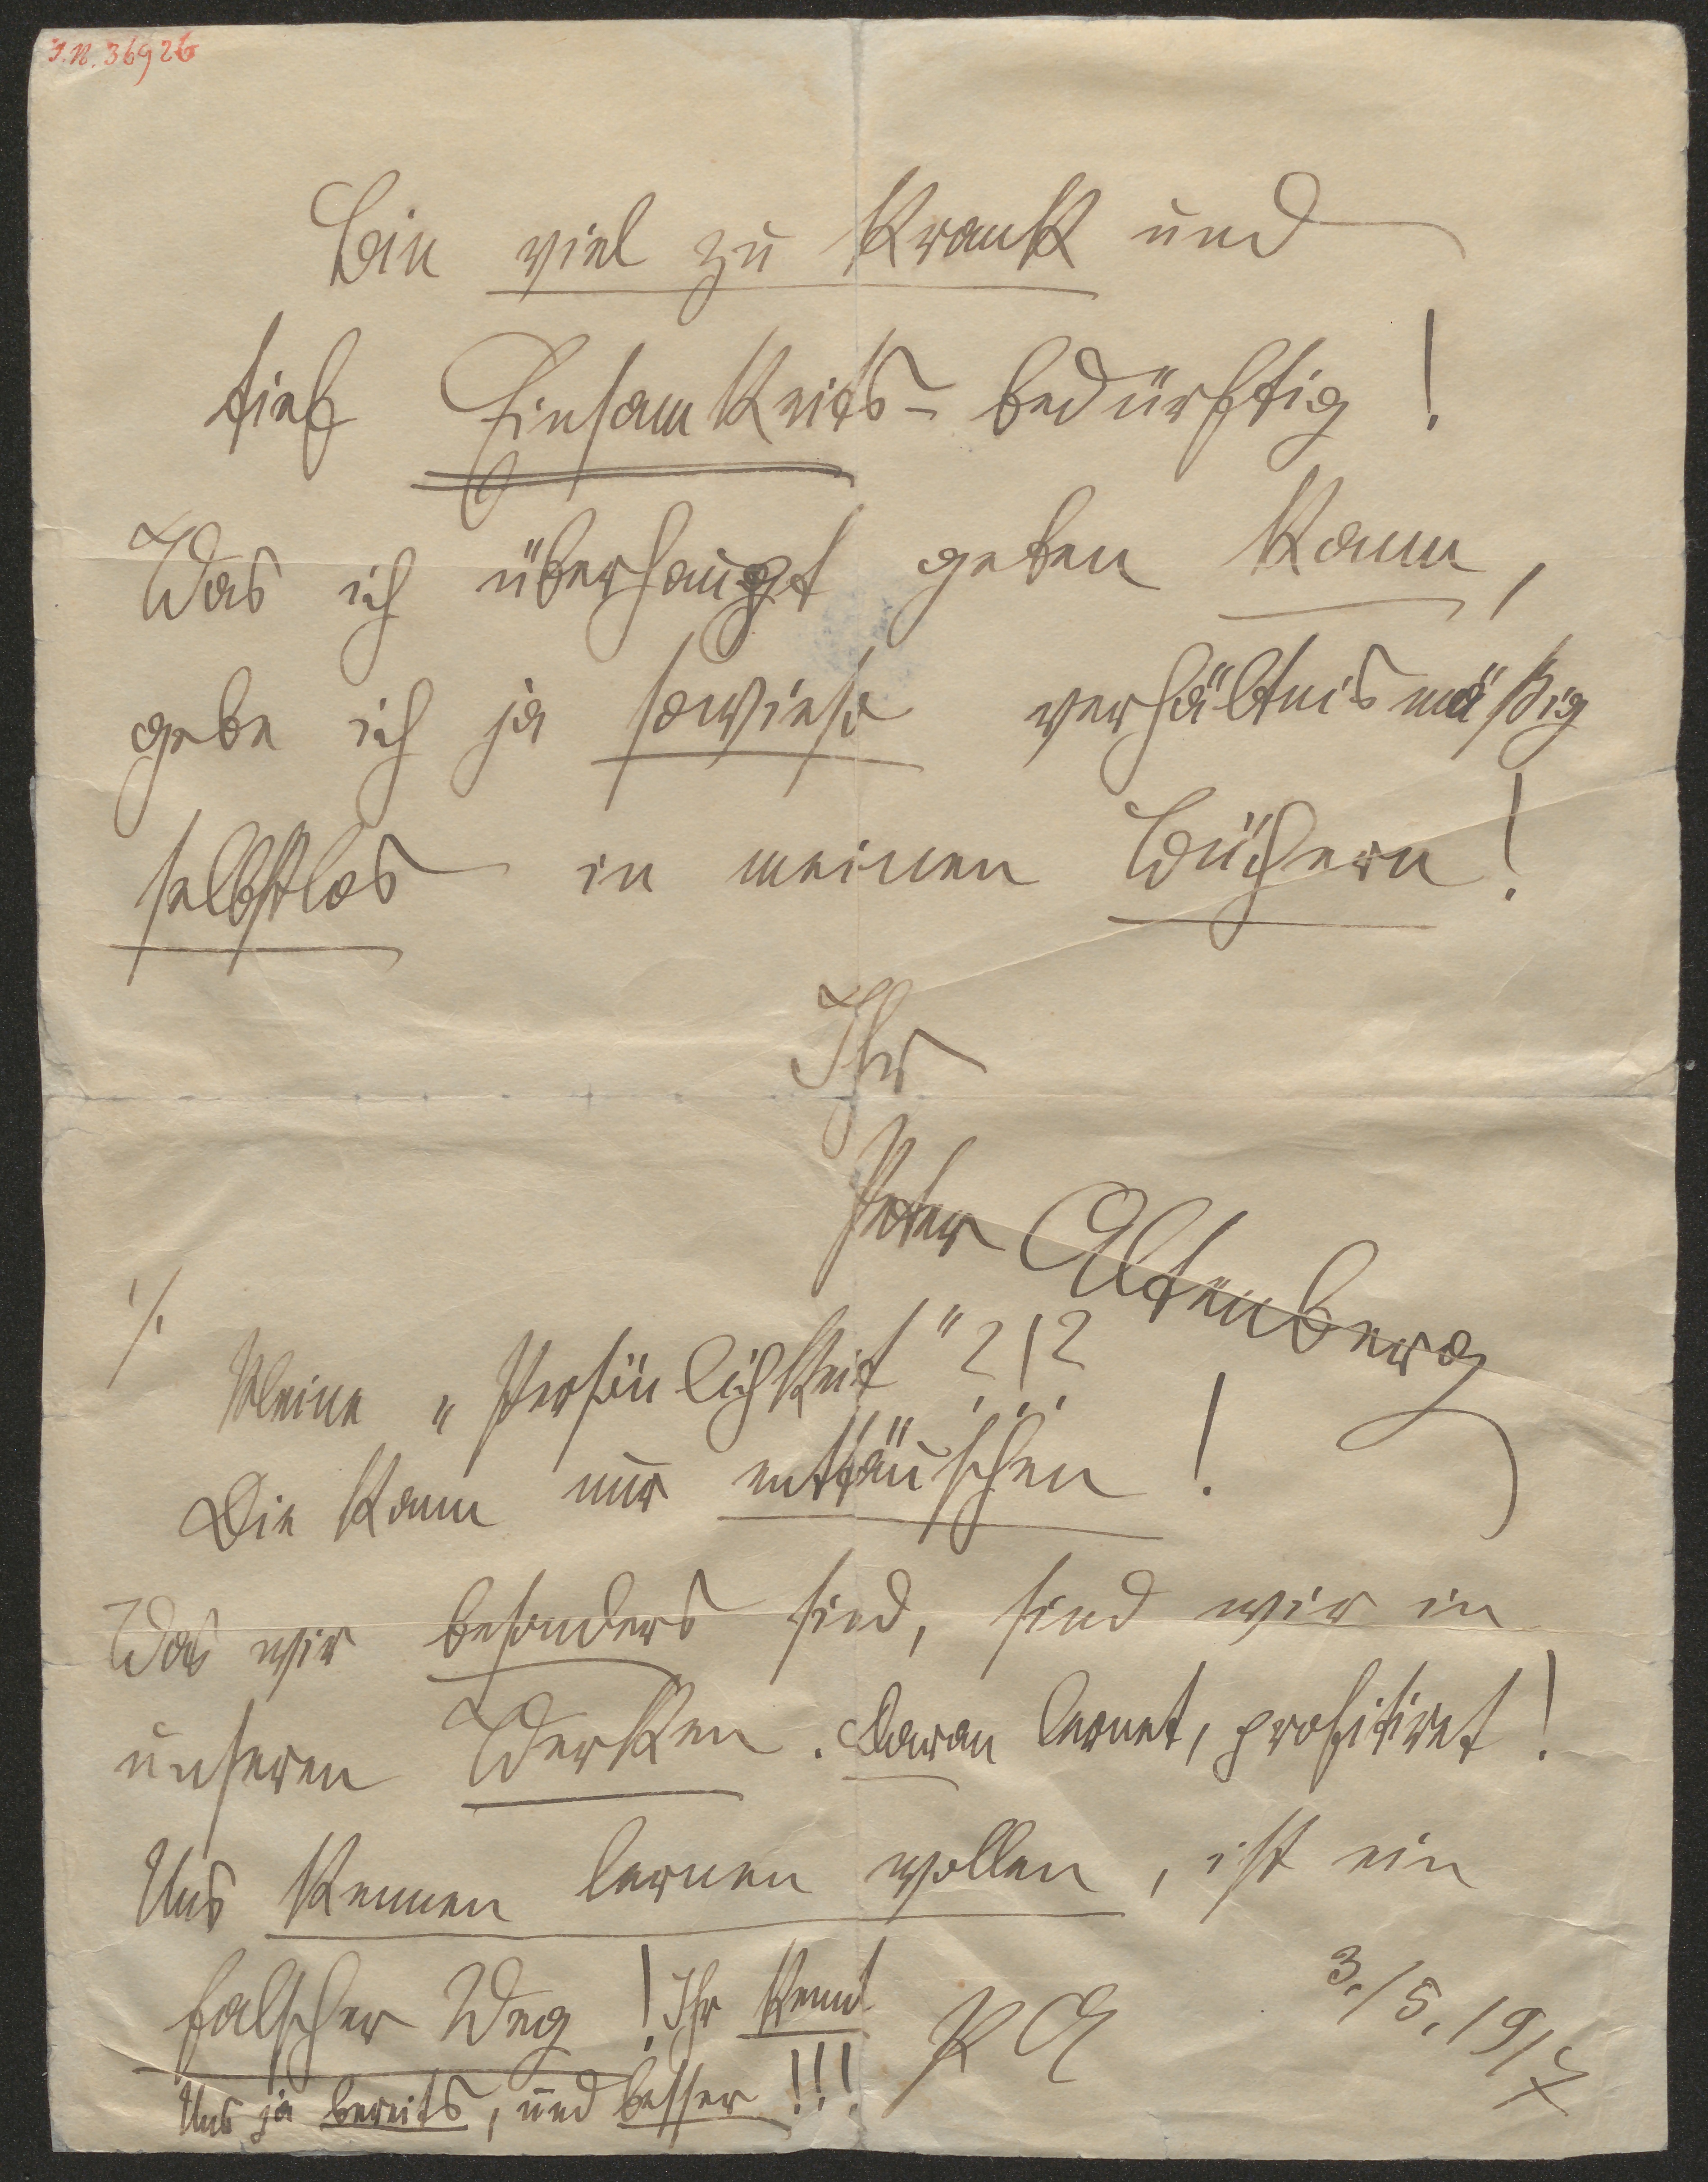 I.N. 36926
Bin viel zu krank und
tief Einsamkeits-bedürftig!
Was ich überhaupt geben kann,
gebe ich ja sowieso verhältnismäßig
selbstlos in meinen Büchern!
Ihr
Peter Altenberg
./.
Meine „Persönlichkeit"?!?
Die kann nur enttäuschen!
Was wir besonders sind, sind wir in
unseren Werken. Daran lernet, profitiret!
Uns kennen lernen wollen, ist ein
falscher Weg! Ihr kennt
Uns ja bereits, und besser!!!
PA
3./5. 1917